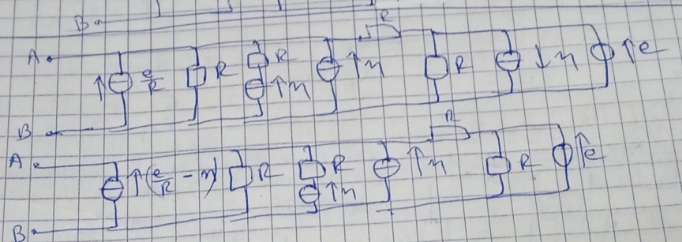 B
R
A ↑ e/R R R ↑η ↑η R ↓η ↑e
B
R
A ↑(e/R - η) R R ↑η ↑η R ↑e
B